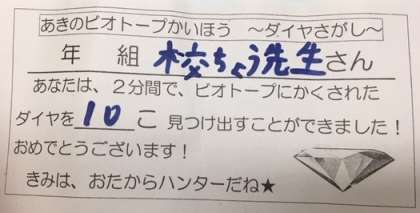 あきのビオトープかいほう ～ダイヤさがし～
年 組 校ちょう先生さん
あなたは、２分間で、ビオトープにかくされた
ダイヤを10こ見つけ出すことができました！
おめでとうございます！
きみは、おたからハンターだね★